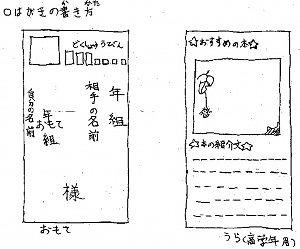 ○はがきの書き方
かた
どくしょゆうびん
年 組
相手の名前
様
年 組
おもて
自分の名前
おもて
☆おすすめの本☆
☆本の紹介文☆
うら(高学年用)